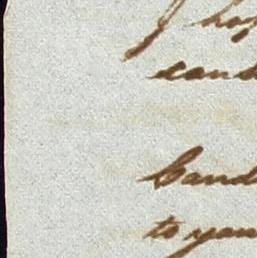 I hop
cand
Cand
to you